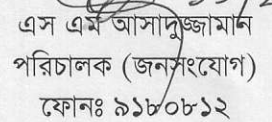 এস এম আসাদুজ্জামান
পরিচালক (জনসংযোগ)
ফোনঃ ৯১৮০৮১২